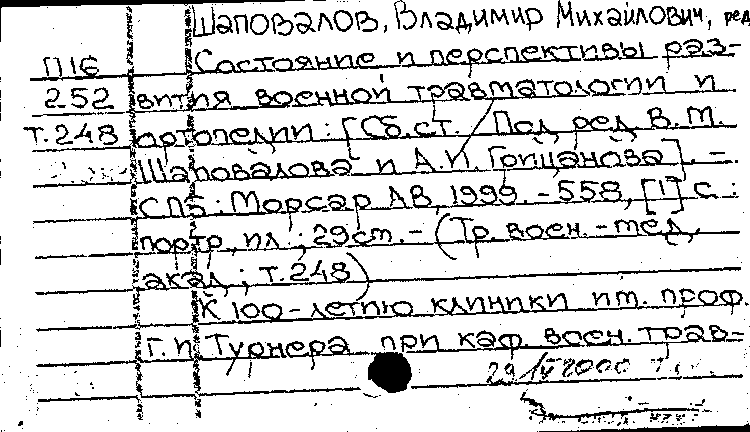 Шаповалов, Владимир Михайлович, ред
П16 Состояние и перспективы раз-
252 вития военной травматологии и
Т.248 ортопедии: [Сб.ст. / Под ред. В.М.
Шаповалова и А.И. Грицанова]. –
СПб: Морсар АВ, 1999. - 558, [1] с.:
портр., ил.; 29см. - (Тр. воен.-мед.
акад.; Т.248)
К 100-летию клиники им. проф.
Г.И. Турнера при каф. воен. трав-
29/IV 2000